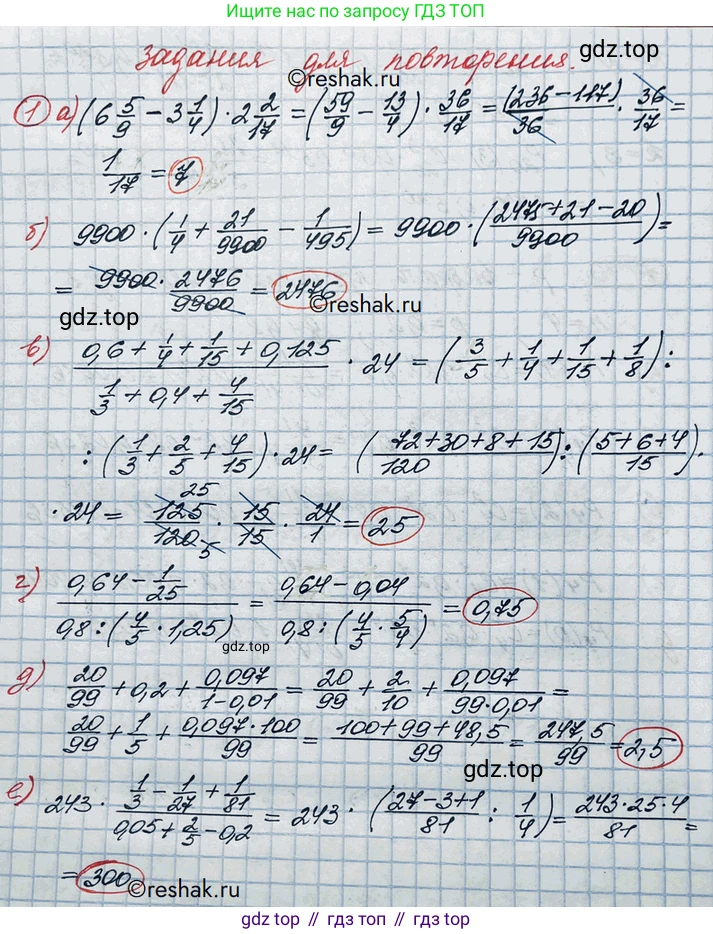 Ищите нас по запросу ГДЗ ТОП
задания для повторения.
gdz.top
©reshak.ru
① а) (6 5/9 − 3 1/4) · 2 2/17 = (59/9 − 13/4) · 36/17 = (236−117)/36 · 36/17 =
1/17 = 7
б) 9900 · (1/4 + 21/9900 − 1/495) = 9900 · (2475+21−20)/9900) =
= 9900 · 2476/9900 = 2476
©reshak.ru
gdz.top
в) (0,6 + 1/4 + 1/15 + 0,125)/(1/3 + 0,4 + 4/15) · 24 = (3/5 + 1/4 + 1/15 + 1/8) :
: (1/3 + 2/5 + 4/15) · 24 = (72+30+8+15)/120) : (5+6+4)/15) ·
· 24 = 125/120 · 15/15 · 24/1 = 25
25
5
г) (0,64 − 1/25)/(0,8 : (4/5 · 1,25)) = (0,64 − 0,04)/(0,8 : (4/5 · 5/4)) = 0,75
gdz.top
д) 20/99 + 0,2 + 0,097/(1−0,01) = 20/99 + 2/10 + 0,097/(99·0,01) =
20/99 + 1/5 + (0,097·100)/99 = (100+99+48,5)/99 = 247,5/99 = 2,5
gdz.top
е) 243 · (1/3 − 1/27 + 1/81)/(0,05 + 2/5 − 0,2) = 243 · ((27−3+1)/81 : 1/4) = (243·25·4)/81 =
= 300
©reshak.ru
gdz top // гдз топ // gdz top // гдз топ